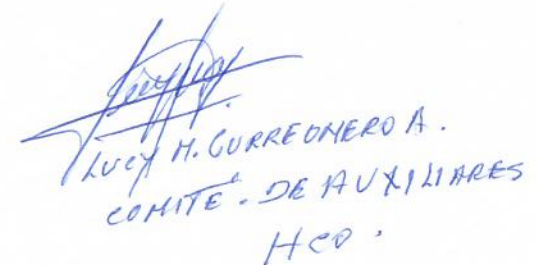 LUCY M. GURREONERO A.
COMITÉ. DE AUXILIARES
HCO.